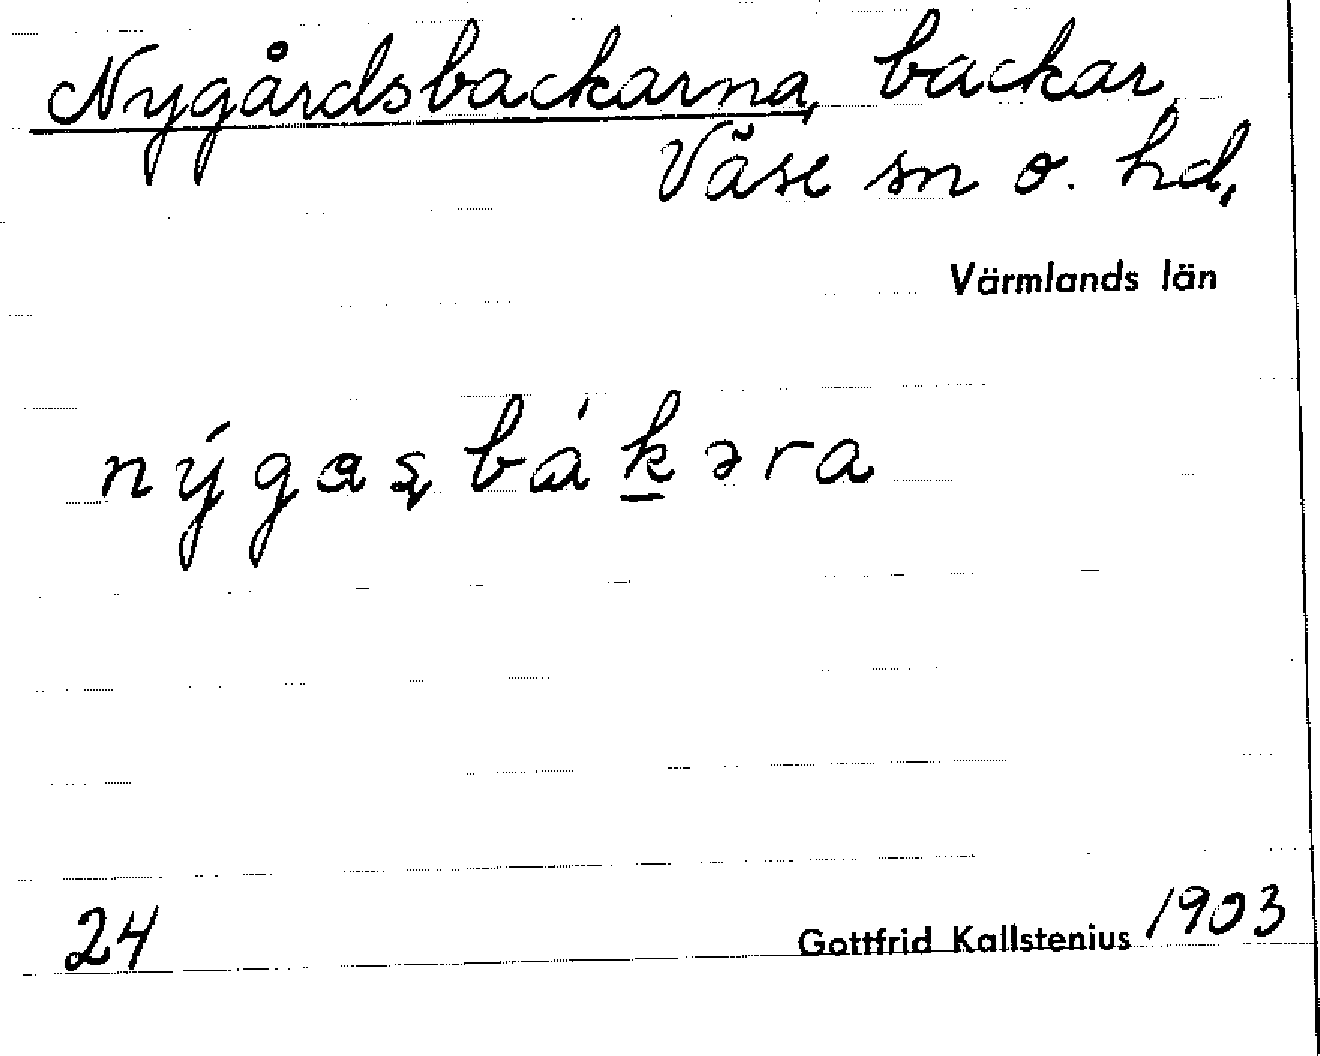 Nygårdsbackarna, backar,
Väse sn o. hd.
Värmlands län
nýgaʂbákəra
24
Gottfrid Kallstenius 1903